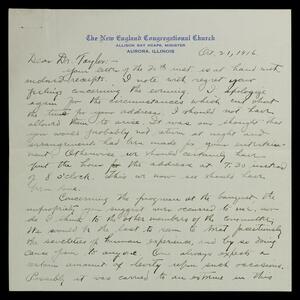 The New England Congregational Church
ALLISON RAY HEAPS, MINISTER
AURORA, ILLINOIS
Oct. 21, 1916
Dear Dr. Taylor:-
Your letter of the 20th inst. is at hand with
receipts. I note with regret your
feelings concerning the evening. I apologize
again for the circumstances which cut short
the time for your address. I should not have
allowed them to arise but was one thought that
you would probably not return at night and
arrangements had been made for your entertain-
ment. Otherwise we should certainly have
put the hour for the address at 7.30 instead
of 8 o'clock. This we now see should have
been done.
Concerning the program at the banquet the
impropriety you suggest was occurred to me, nor
do I think to the other members of the committee.
We would be the last to seem to treat facetiously
the sanctities of human experience, and by so doing
cause pain to anyone. One always expects a
certain amount of levity upon such occasions.
Possibly it was carried to an extreme in this